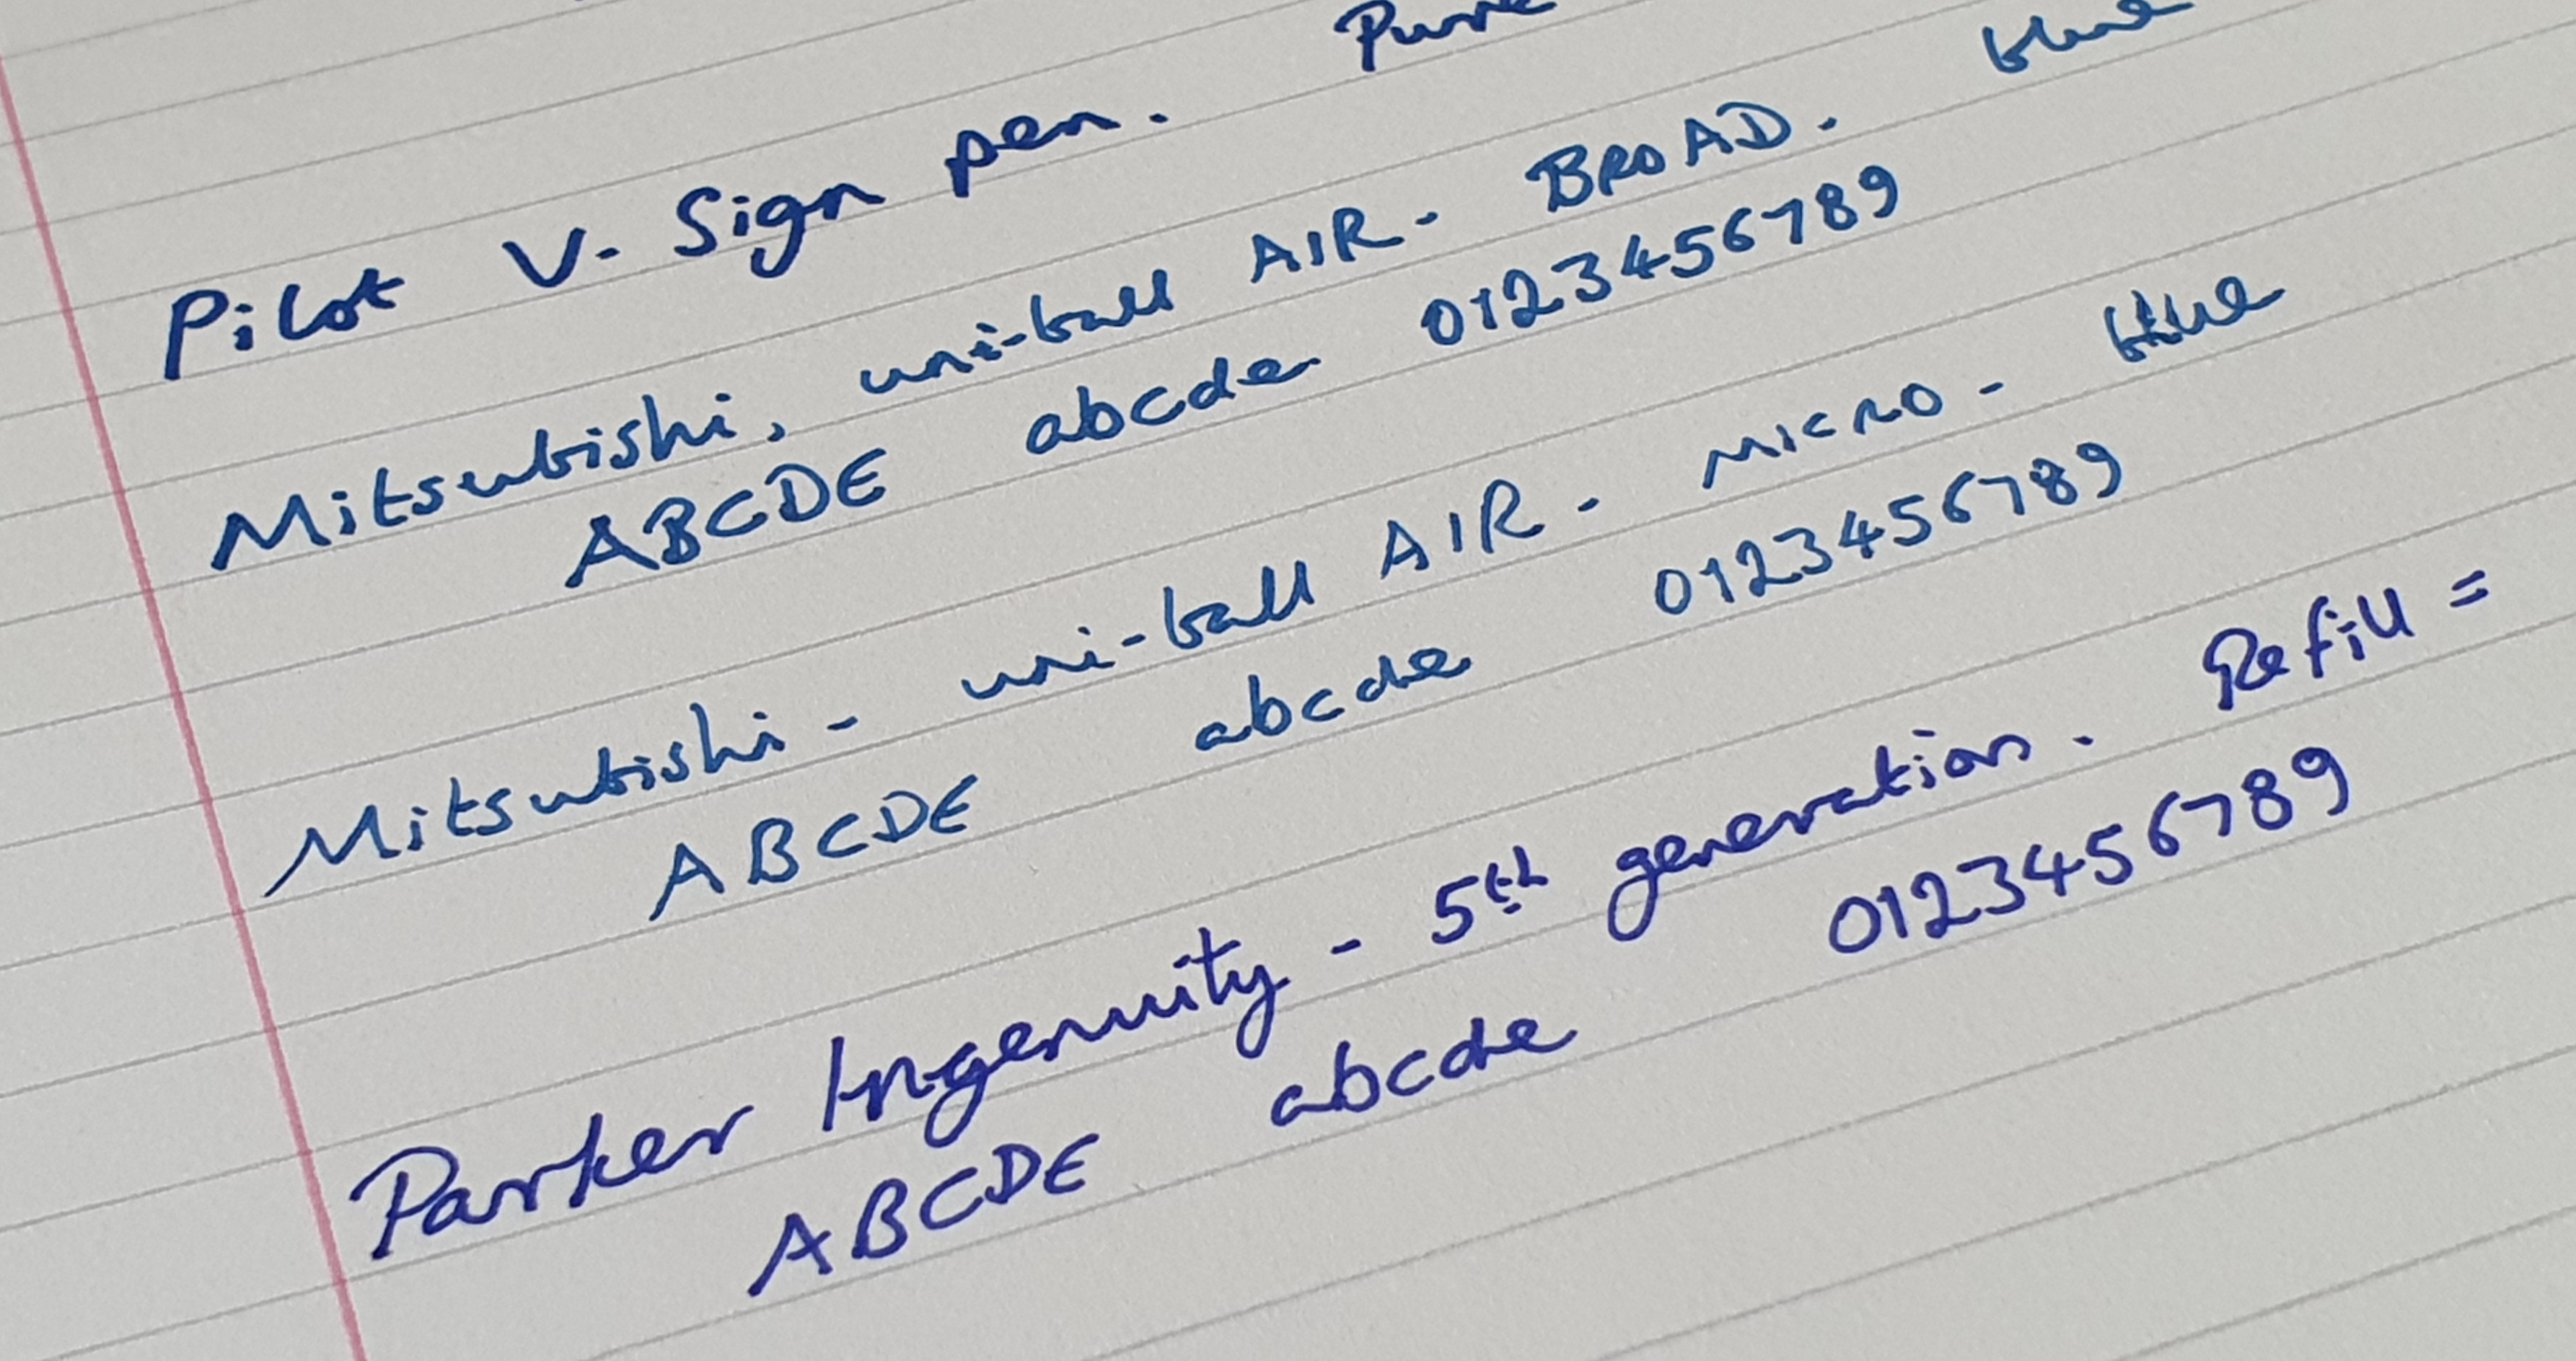 Pilot V. Sign pen.
Mitsubishi, uni-ball AIR - BROAD. blue
ABCDE abcde 0123456789
Mitsubishi - uni-ball AIR - MICRO - blue
ABCDE abcde 0123456789
Parker Ingenuity - 5th generation. Refill =
ABCDE abcde 0123456789